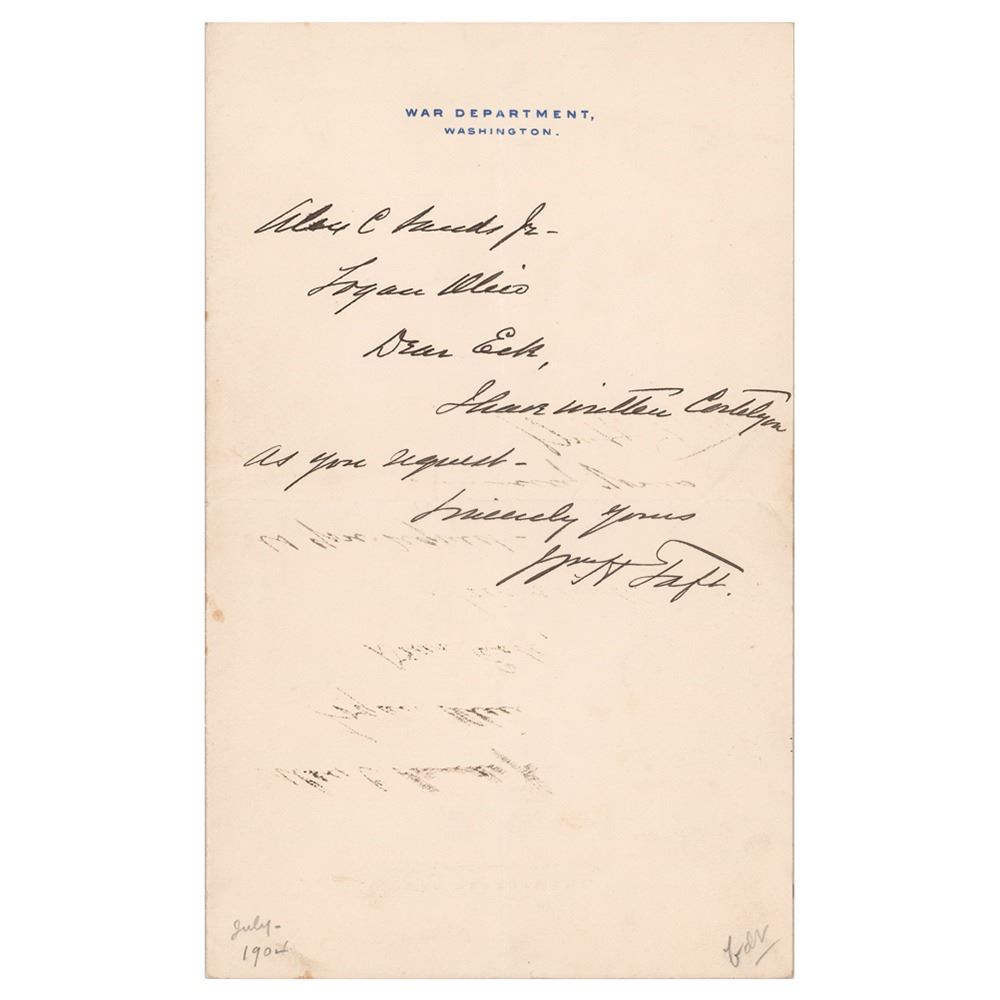 WAR DEPARTMENT,
WASHINGTON.
Alex C Sands Jr -
Logan Ohio
Dear Eck,
I have written Cortelyou
as you request -
Sincerely yours
Wm H Taft.
July -
1904